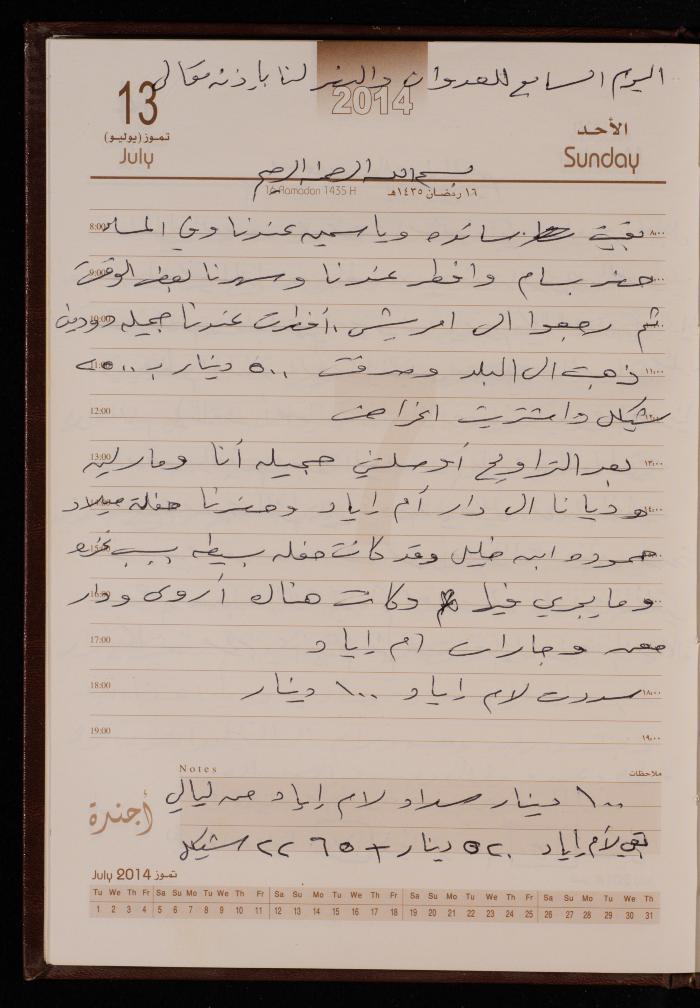 اليوم السابع للعدوان والنصر لنا بإذنه تعالى
2014
13
تموز (يوليو)
July
الأحد
Sunday
بسم الله الرحمن الرحيم
16 Ramadan 1435 H
١٦ رمضان ١٤٣٥هـ
8:00 بقيت سائده وياسمين عندنا وفي المساء ٨:٠٠
9:00 حضر بسام وافطر عندنا وسهرنا بعض الوقت
10:00 ثم رجعوا الى امريش. أفطرت عندنا جميله ووديان
11:00 ذهبت الى البلد وصرفت ٥٠٠ دينار ب ٢٥٠٠ ١١:٠٠
12:00 شيكل واشتريت اغراض ١٢:٠٠
13:00 بعد التراويح أوصلتني جميله أنا ومارلين ١٣:٠٠
وديانا الى دار أم إياد وحضرنا حفلة ميلاد ١٤:٠٠
15:00 حموده ابن خليل وقد كانت حفله بسيطه بسبب غزه
16:00 وما يجري فيها وكانت هناك أروى ودار
17:00 معن وجارات ام إياد
18:00 سددت لام إياد ١٠٠ دينار ١٨:٠٠
19:00 ١٩:٠٠
Notes
ملاحظات
أجندة
١٠٠ دينار سداد لام إياد من ليالي
بقي لأم إياد ٥٢٠ دينار + ٢٢٦٥ شيكل
July 2014 تموز
Tu We Th Fr Sa Su Mo Tu We Th Fr Sa Su Mo Tu We Th Fr Sa Su Mo Tu We Th Fr Sa Su Mo Tu We Th
1 2 3 4 5 6 7 8 9 10 11 12 13 14 15 16 17 18 19 20 21 22 23 24 25 26 27 28 29 30 31